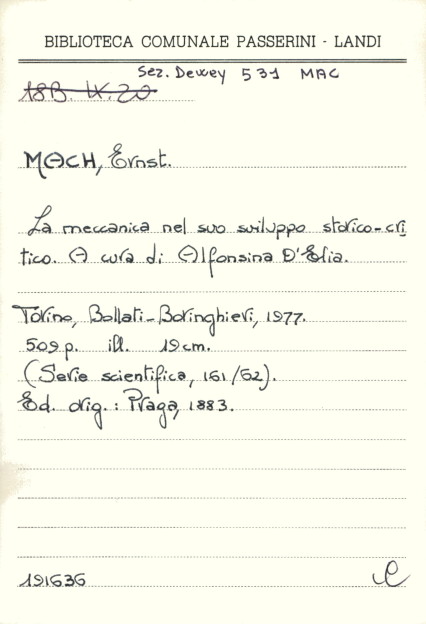 BIBLIOTECA COMUNALE PASSERINI - LANDI
Sez. Dewey 531 MAC
18B. IX. 20
MACH, Ernst.
La meccanica nel suo sviluppo storico-cri
tico. A cura di Alfonsina D'Elia.
Torino, Bollati-Boringhieri, 1977.
509 p. ill. 19 cm.
(Serie scientifica, 161/62).
Ed. orig.: Praga, 1883.
191636